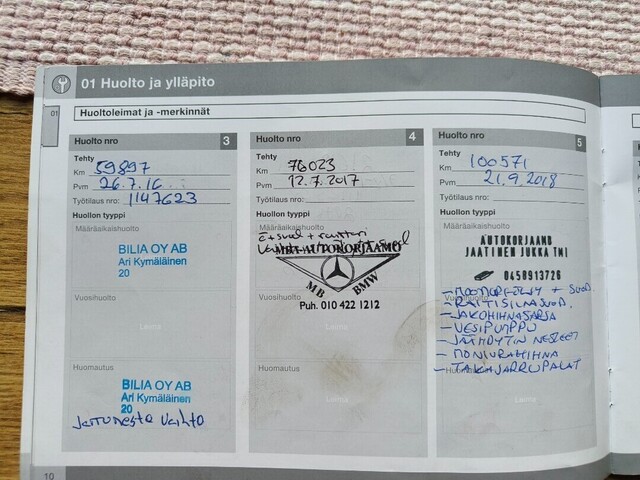 01 Huolto ja ylläpito
01
Huoltoleimat ja -merkinnät
Huolto nro 3
Tehty
Km 59897
Pvm 26.7.16
Työtilaus nro: 1147623
Huollon tyyppi
Määräaikaishuolto
BILIA OY AB
Ari Kymäläinen
20
Vuosihuolto
Leima
Huomautus
BILIA OY AB
Ari Kymäläinen
20
Jarruneste vaihto
Huolto nro 4
Tehty
Km 76023
Pvm 12.7.2017
Työtilaus nro:
Huollon tyyppi
Määräaikaishuolto
MB BMW
Puh. 010 422 1212
Vuosihuolto
Leima
Huomautus
Leima
Huolto nro 5
Tehty
Km 100571
Pvm 21.9.2018
Työtilaus nro:
Huollon tyyppi
Määräaikaishuolto
AUTOKORJAAMO
JAATINEN JUKKA TMI
0458913726
- MOOTTORIÖLJY + SUOD.
- RAITISILMASUOD.
- JAKOHIHNASARJA
- VESIPUMPPU
- JÄÄHDYTIN NESTEET
- MONIURAHIHNA
- TAKAJARRUPALAT
Leima
10